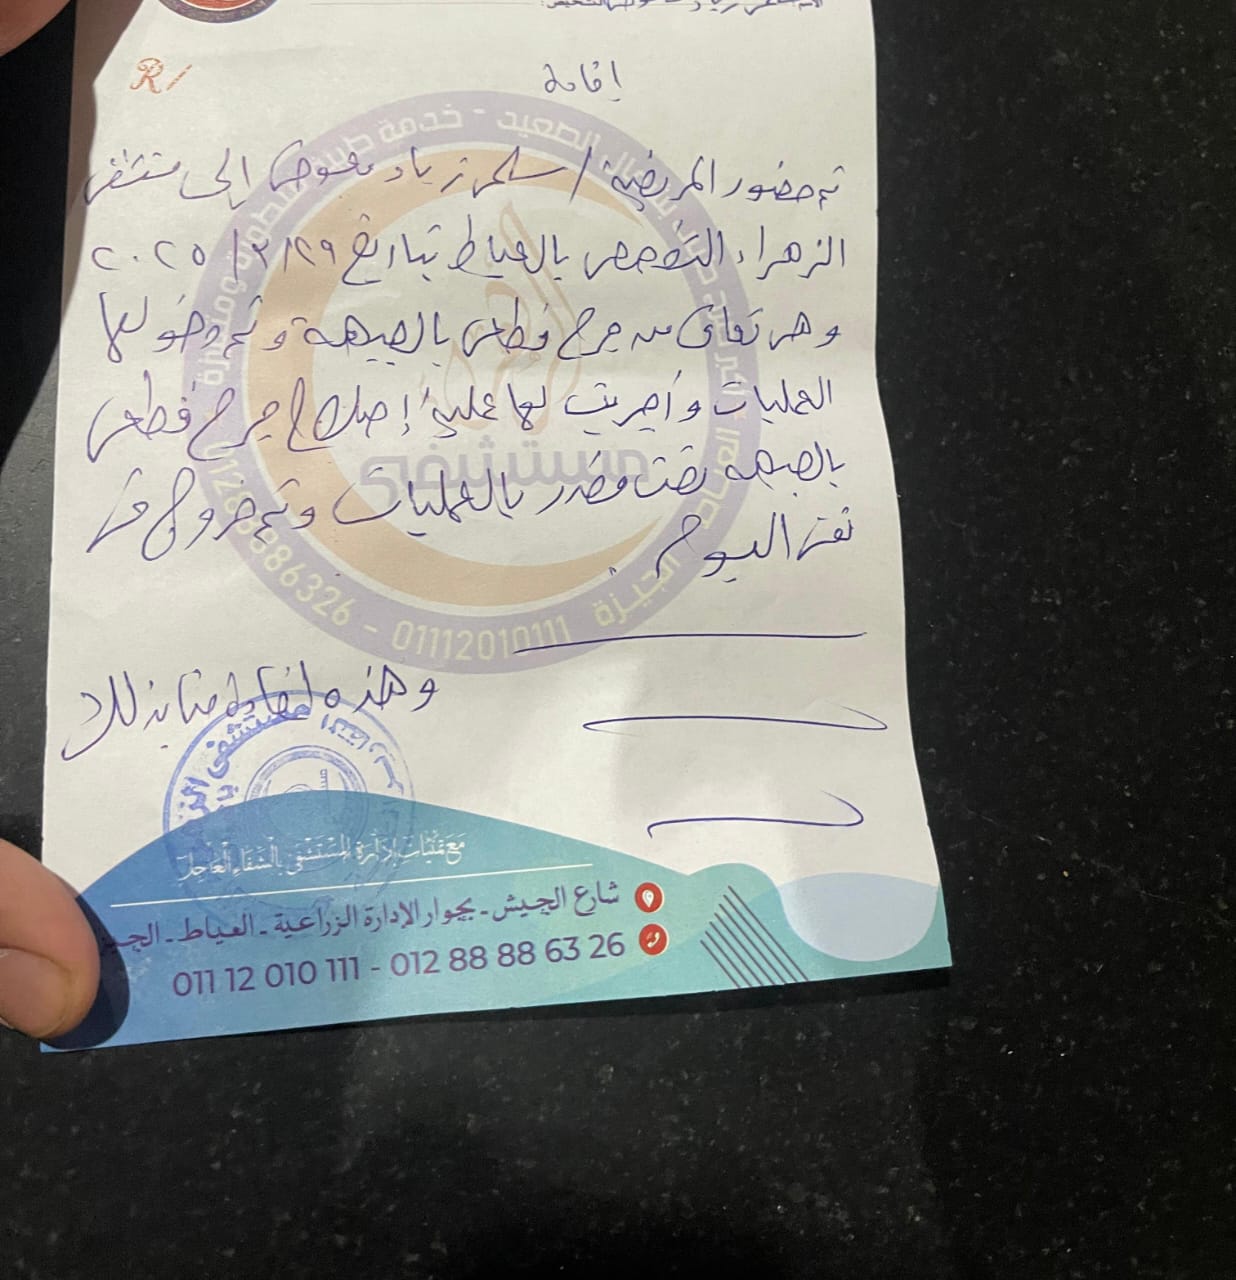 R/
إفادة
تم حضور المريضة / سلمى زياد معوض إلى مستشفى
الزهراء التخصصى بالعياط بتاريخ ٢٩/٣/٢٠٢٥
وهى تعانى من جرح قطعى بالجبهة وتم دخولها
العمليات وأجريت لها عملية إصلاح جرح قطعى
بالجبهة تحت مخدر بالعمليات وتم خروج فى
نفس اليوم
وهذه إفادة منا بذلك
مستشفى
01112010111 - 01288886326
مع تمنيات إدارة المستشفى بالشفاء العاجل
شارع الجيش - بجوار الإدارة الزراعية - العياط -
011 12 010 111 - 012 88 88 63 26